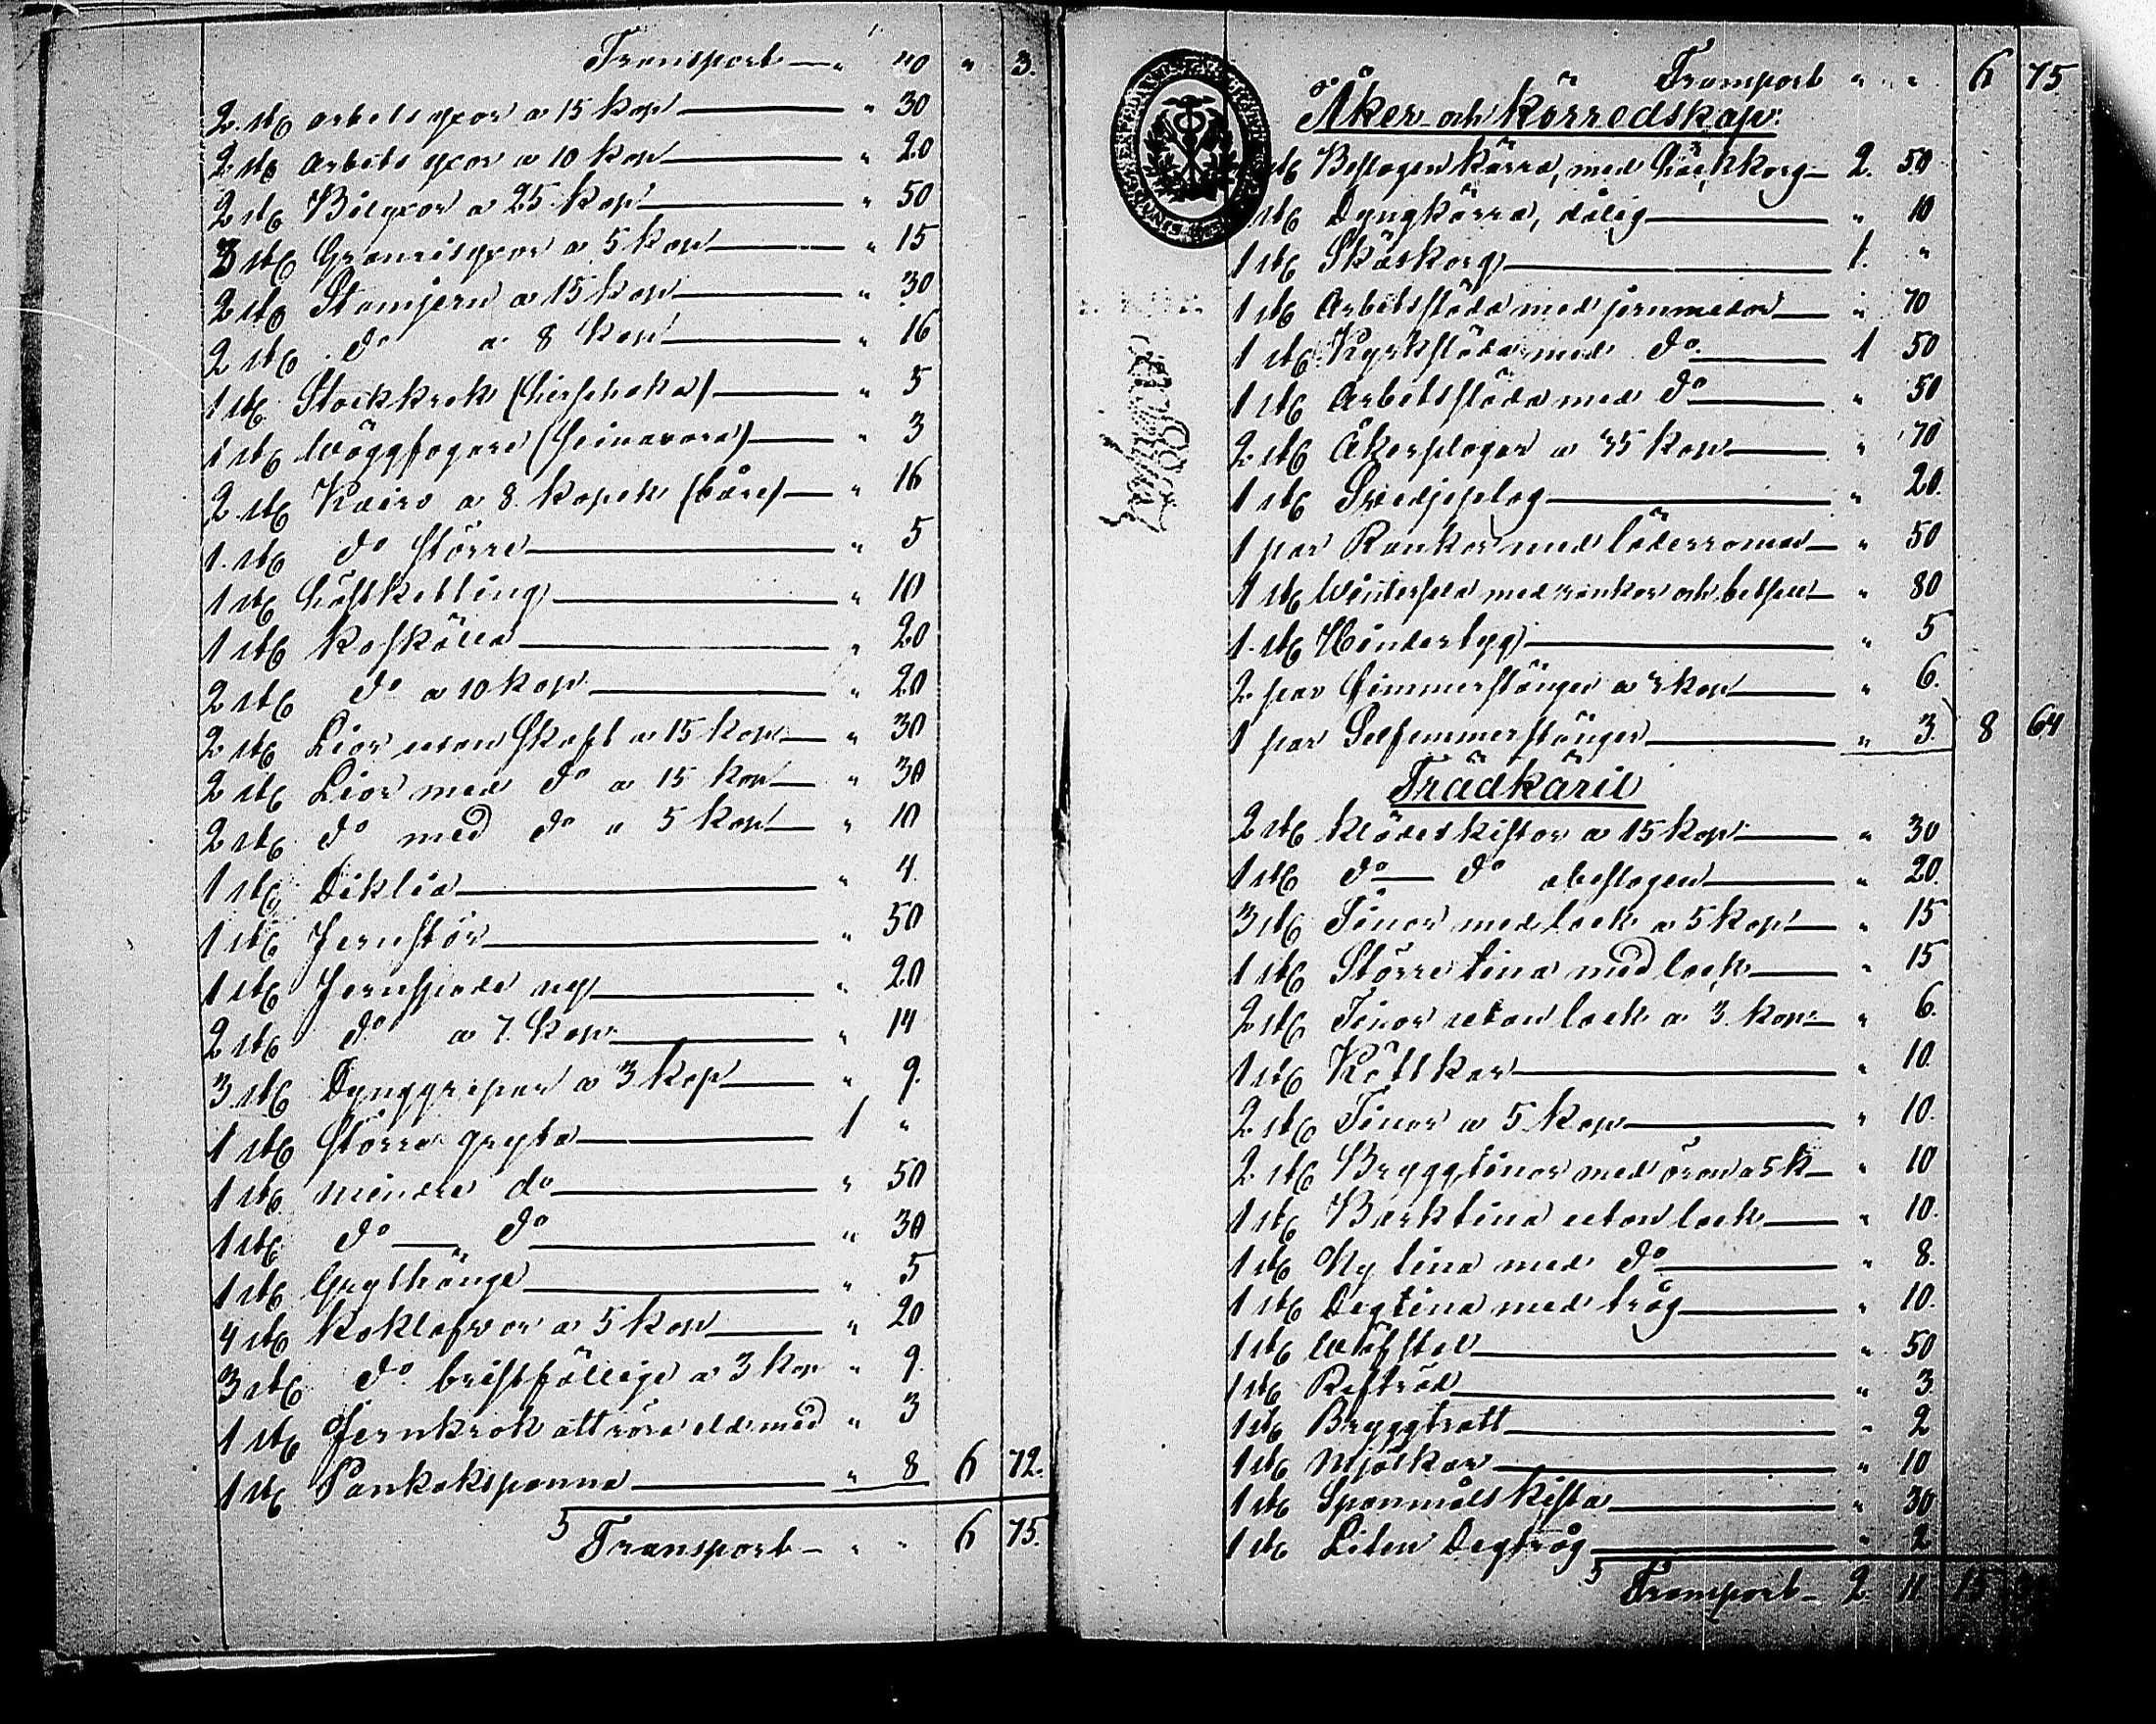 Transport — " 40 " 3.
2 st. arbetsyxor a 15 kop — " 30
2 st. arbets yxor a 10 kop — " 20
2 st. Bilyxor a 25 kop — " 50
3 st. Granrisyxor a 5 kop — " 15
2 st. Stamjern a 15 kop — " 30
2 st. do a 8 kop — " 16
1 st. Stockkrok — " 5
1 st. — " 3
2 st. a 8 kopek — " 16
1 st. do större — " 5
1 st. Häftketting — " 10
1 st. Koskälla — " 20
2 st. do a 10 kop — " 20
2 st. Lior utan Skaft a 15 kop — " 30
2 st. Lior med do a 15 kop — " 30
2 st. do med do a 5 kop — " 10
1 st. Diklia — " 4
1 st. Jernstör — " 50
1 st. Jernspade ny — " 20
2 st. do a 7 kop — " 14
3 st. Dynggrepar a 3 kop — " 9.
1 st. Större gryta — 1 "
1 st. mindre do — " 50
1 st. do — do — " 30
1 st. Grythänge — " 5
4 st. a 5 kop — " 20
3 st. do bristfällige a 3 kop " 9.
1 st. Jernkrok att röra eld med " 3
1 st. Pankakspanna — " 8 6 72.
Transport — " " 6 75.
Transport " " 6 75.
Åker- och Körredskap.
st. Beslagen Kärra, med — 2. 50
st. Dyngkärra, dålig — " 10
1 st. Skäskorg — 1. "
1 st. Arbetssläda med jernmedar — " 70
1 st. Kyrksläda med do — 1 50
1 st. Arbetssläda med do — " 50
2 st. Åkerplogar a 35 kop — " 70
1 st. Svedjeplog — " 20.
1 par Rankor med läderremar — " 50
1 st. med rankor och betsel — " 80
1 st. Hindertyg — " 5
2 par Fimmerstänger a 3 kop — " 6.
1 par Selfimmerstänger — " 3. 8 64
Trädkäril
2 st. Klädeskistor a 15 kop — " 30
1 st. do — do obeslagen — " 20.
3 st. Tinor med lock a 5 kop — " 15
1 st. Större tina med lock — " 15
2 st. Tinor utan lock a 3 kop — " 6.
1 st. Köttkar — " 10.
2 st. Tinor a 5 kop — " 10.
2 st. Bryggtinor med öron a 5 k — " 10
1 st. Barktina utan lock — " 10.
1 st. Ny tina med do — " 8.
1 st. Degtina med tråg — " 10.
1 st. Wäfstol — " 50
1 st. — " 3.
1 st. Bryggtratt — " 2
1 st. Mjölkar — " 10
1 st. Spanmålskista — " 30
1 st. Liten Degtråg — " 2
Transport — 2 11 15